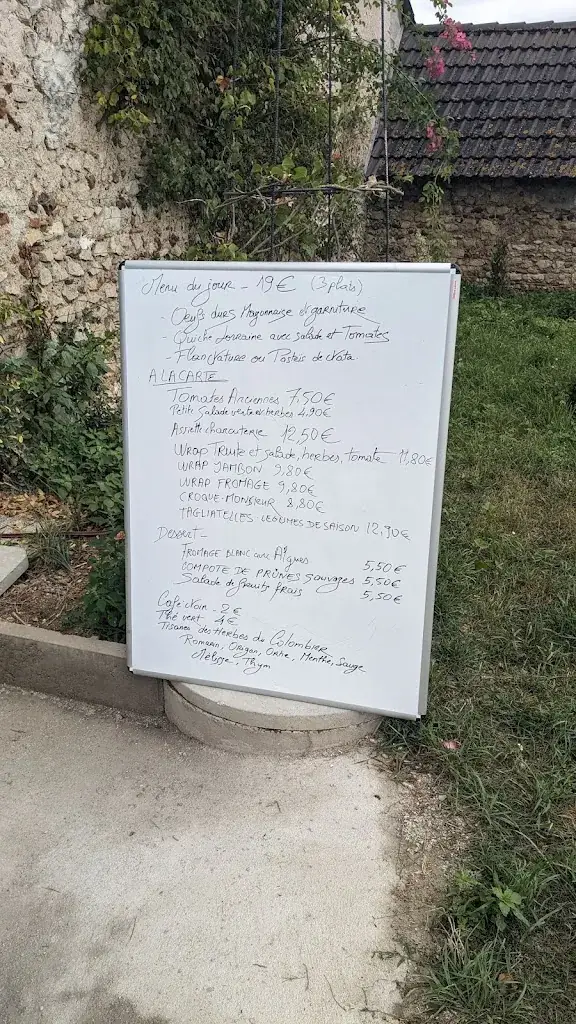 Menu du jour - 19€ (3 plats)
- Oeufs durs Mayonnaise et garniture
- Quiche Lorraine avec salade et Tomates
- Flan Nature ou Pasteis de Nata
A LA CARTE
Tomates Anciennes 7,50€
Petite Salade verte et herbes 4,90€
Assiette charcuterie 12,50€
Wrap Truite et salade, herbes, tomate 11,80€
WRAP JAMBON 9,80€
WRAP FROMAGE 9,80€
CROQUE-MONSIEUR 8,80€
TAGLIATELLES LEGUMES DE SAISON 12,90€
Dessert -
FROMAGE BLANC avec 5,50€
COMPOTE DE PRUNES Sauvages 5,50€
Salade de fruits frais 5,50€
Café Noir - 2€
Thé vert 4€
Tisanes des Herbes du Colombier
Romarin, Origan, Ortie, Menthe, Sauge
Mélisse, Thym